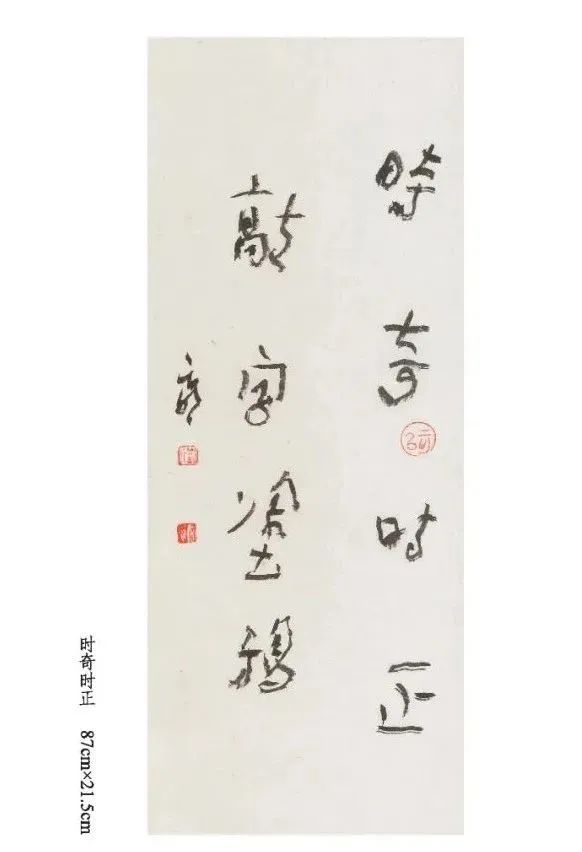 時奇时正
敲字塗鴉
时奇时正 87cm×21.5cm